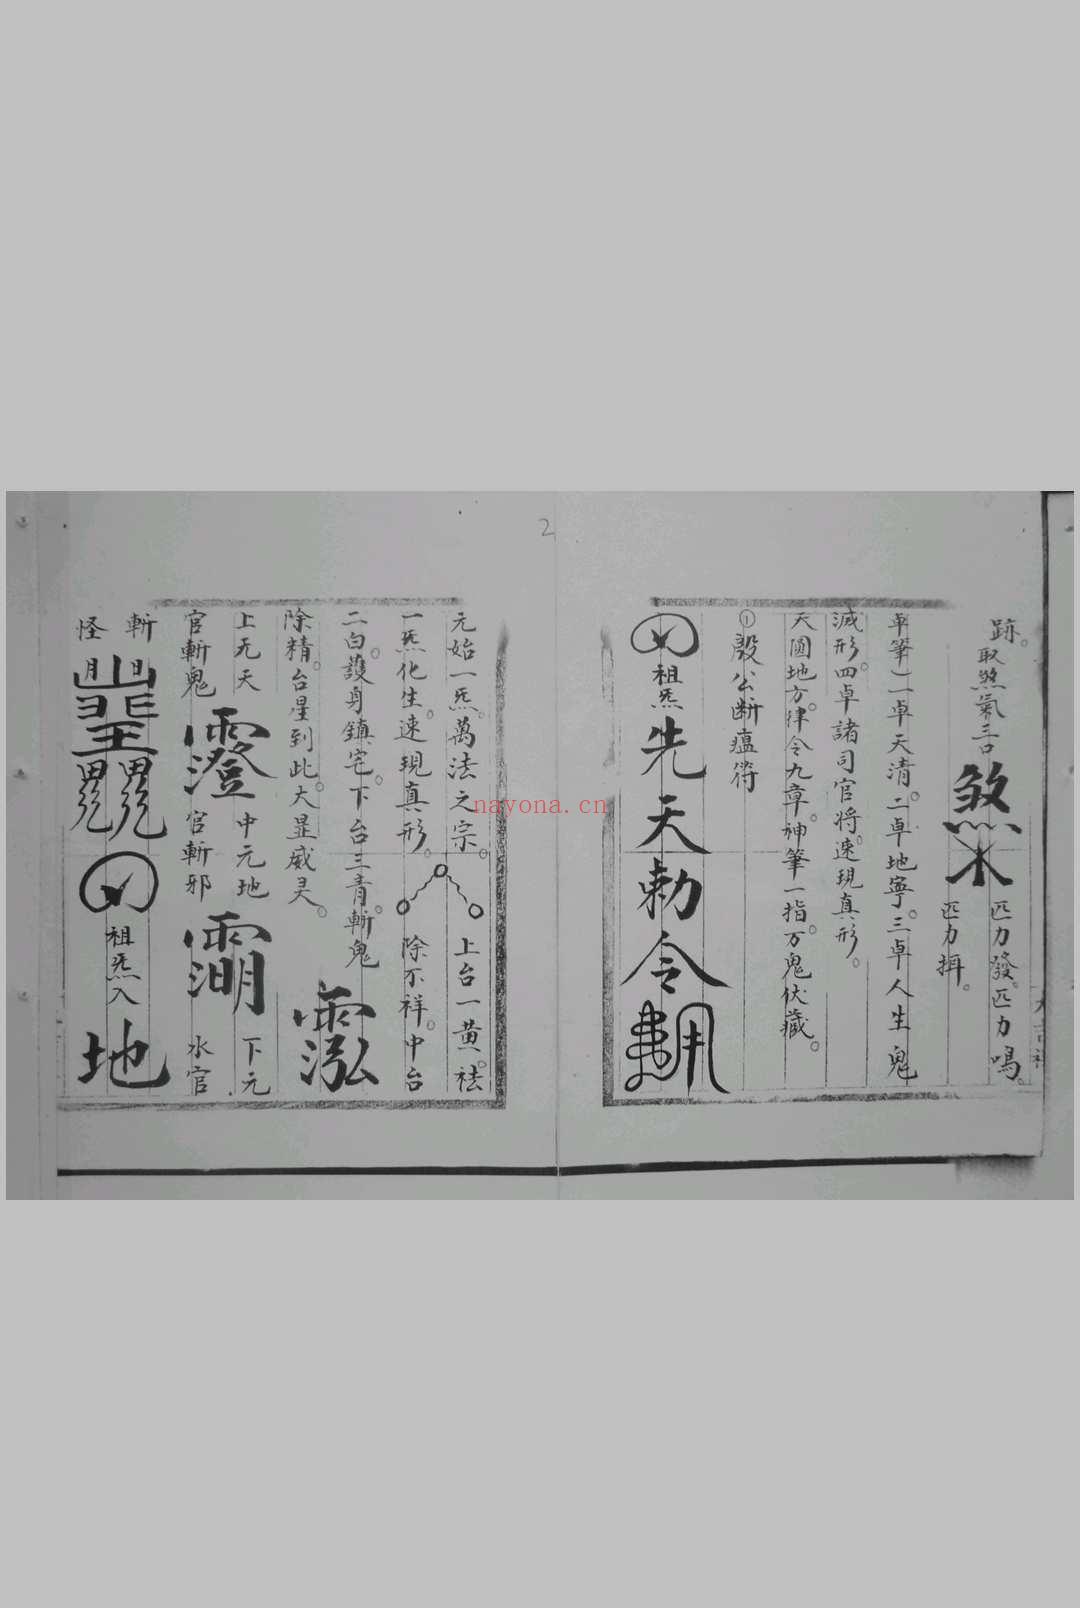 跡。取煞氣三口 煞 匹力發。匹力鳴。
匹力搙。
卓筆)一卓天清。二卓地寧。三卓人生 鬼
滅形。四卓諸司官將。速現真形。
天圓地方。律令九章。神筆一指。万鬼伏藏。
① 殷公断瘟符
祖炁 先天勅令
2
元始一炁。萬法之宗。上台一黄。祛
一炁化生。速現真形。除不祥。中台
二白。護身鎮宅。下台三青。斬鬼
除精。台星到此。大显威灵。
上元天 中元地 下元
官斬鬼 官斬邪 水官
斬 日
怪 月
祖炁入 地
nayona.cn